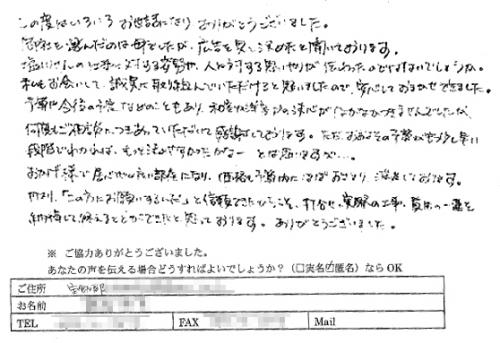 この度はいろいろお世話になりありがとうございました。
御社を選んだのは母でしたが、広告を見て決めたと聞いております。
さんの仕事に対する姿勢や、人に対する思いやりが伝わったのではないでしょうか。
私もお会いして、誠実に取り組んでいただけると思いましたので、安心しておまかせできました。
予算や今後の予定などのこともあり、決心がなかなかつきませんでしたが、
何度もご相談につきあっていただいて感謝しております。ただ、おおよその予算がもう少し早い
段階でわかれば、もっと決めやすかったかなー とは思いますが…。
おかげ様で居心地のいい部屋になり、価格も予算内にほぼおさまり、満足しております。
何より、「この方にお願いするんだ」と信頼できたからこそ、打合せ、実際の工事、最後の
納得して終えることができたと思っております。ありがとうございました。
※ ご協力ありがとうございました。
あなたの声を伝える場合どうすればよいでしょうか?(□実名☑匿名)ならOK
ご住所
お名前
TEL FAX Mail